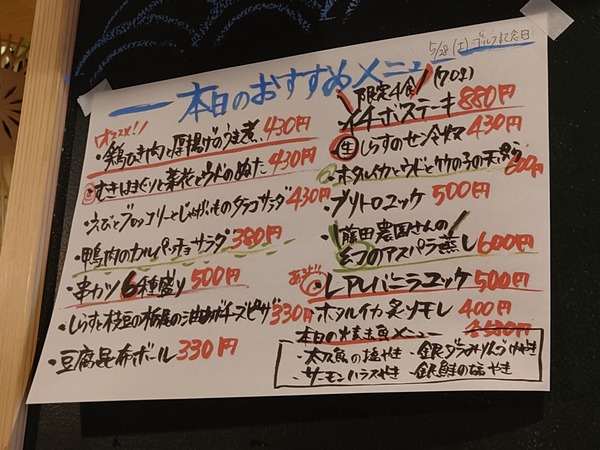 5/28(土)ゴルフ記念日
本日のおすすめメニュー
オススメ!!
・鶏ひき肉と厚揚げのうま煮 430円
・むきほまぐりと菜花とウドのぬた 430円
・えびとブロッコリーとじゃがいものタラコサラダ 430円
・鴨肉のカルパッチョサラダ 380円
・串カツ6種盛り 500円
・しらすと枝豆の栃尾の油あげチーズピザ 330円
・豆腐昆布ボール 330円
限定4食 (70g)
イチボステーキ 880円
・生しらすのセン冷奴 430円
・ホタルイカとウドとタケの子の天ぷら
・ブリトロユッケ 500円
・藤田農園さんの
えつのアスパラ蒸し 600円
・レアレバニラユッケ 500円
・ホタルイカ炙りモレ 400円
本日の焼き魚メニュー
・太刀魚の塩やき ・銀ダラみりんづけやき
・サーモンハラスやき ・銀鮭のなやき